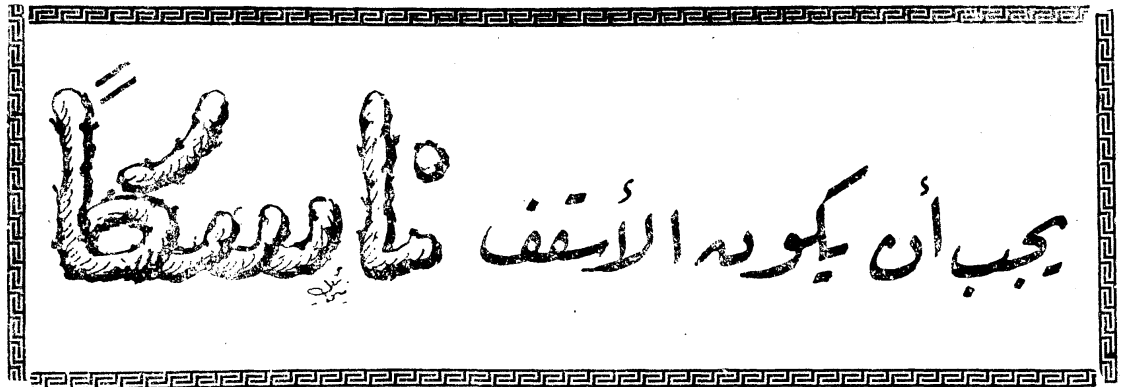 يجب أن يكون الأسقف ناسكًا